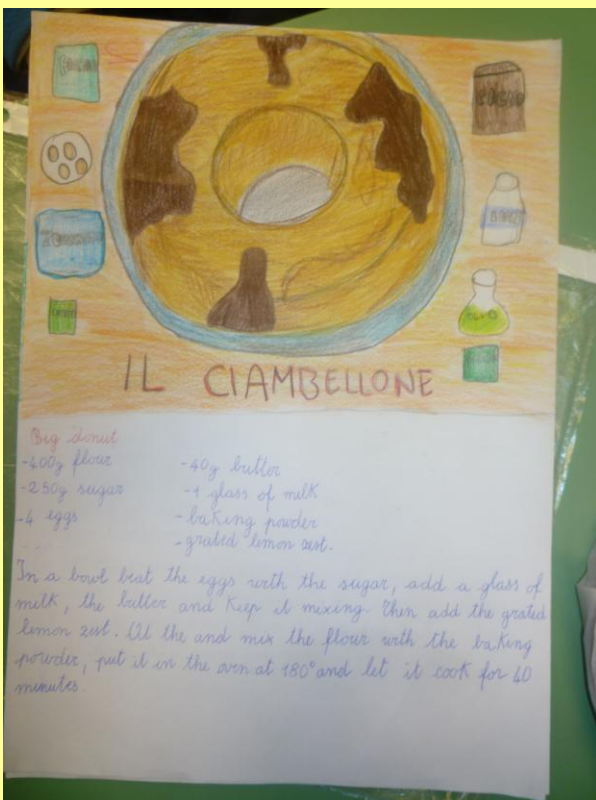 CACAO
IL CIAMBELLONE
Big donut
-400g flour
-250g sugar
-4 eggs
-40g butter
-1 glass of milk
-baking powder
-grated lemon zest.
In a bowl beat the eggs with the sugar, add a glass of
milk, the butter and keep it mixing. Then add the grated
lemon zest. At the and mix the flour with the baking
powder, put it in the ovn at 180° and let it cook for 40
minutes.